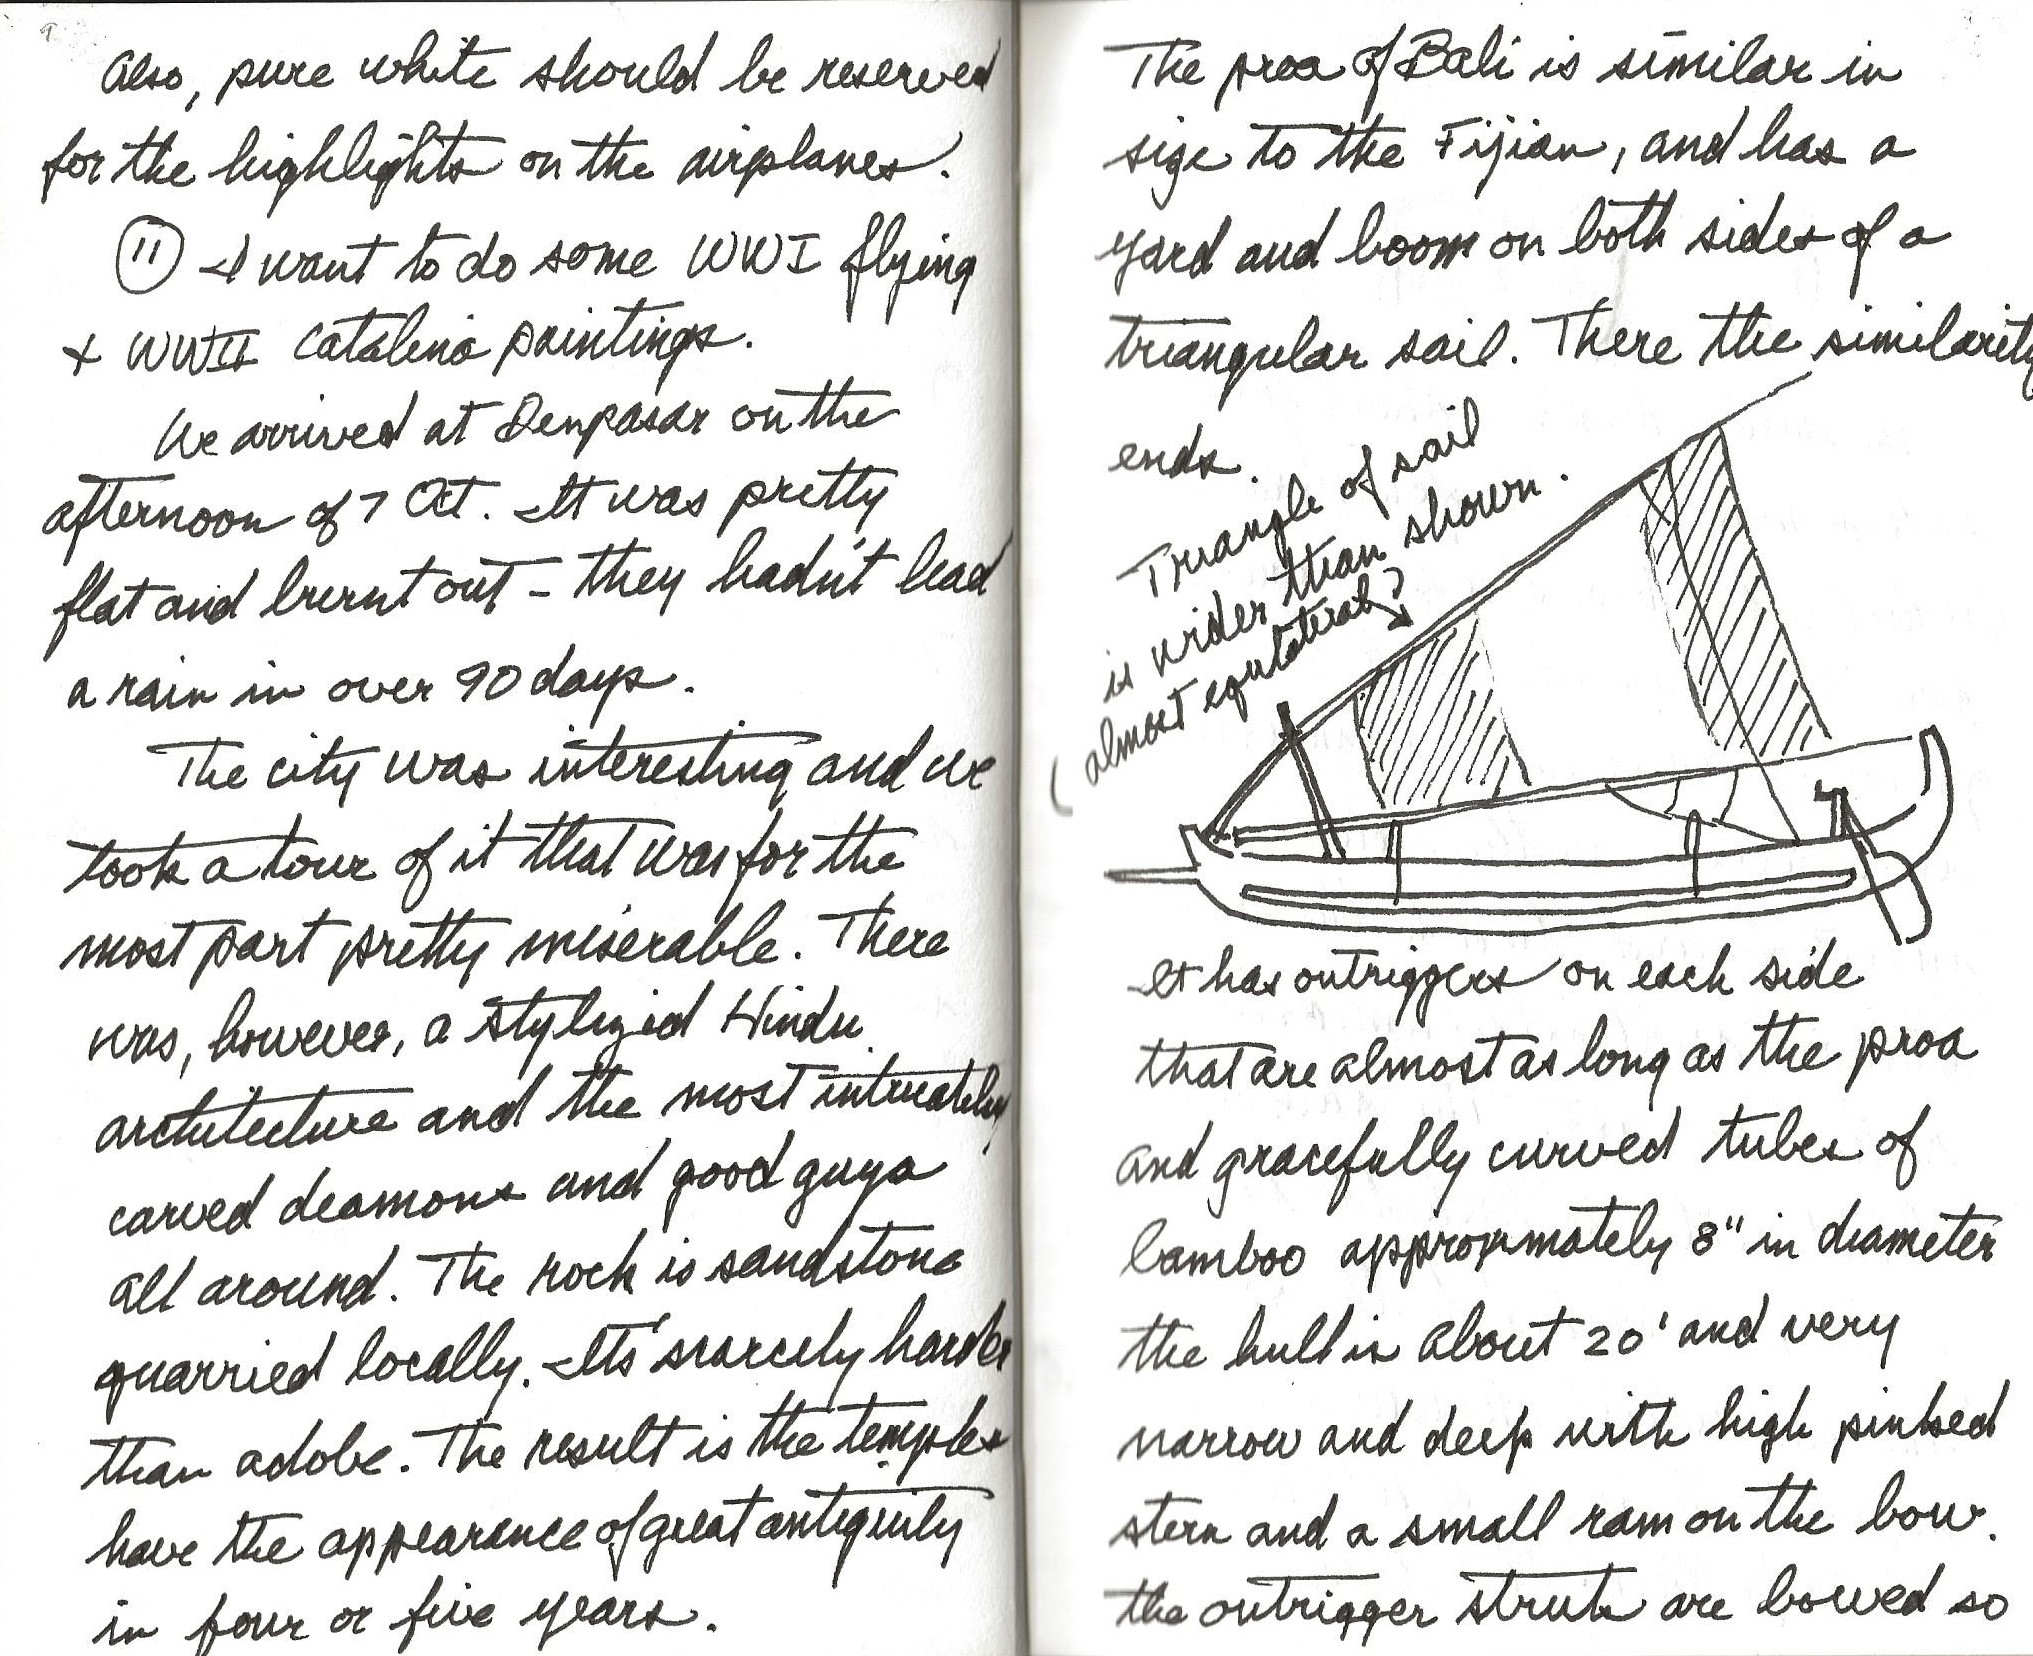 Also, pure white should be reserved
for the highlights on the airplanes.
11 I want to do some WWI flying
+ WWII Catalina paintings.
We arrived at Denpasar on the
afternoon of 7 Oct. It was pretty
flat and burnt out – they hadn't had
a rain in over 90 days.
The city was interesting and we
took a tour of it that was for the
most part pretty miserable. There
was, however, a stylized Hindu
architecture and the most intricately
carved deamons and good guys
all around. The rock is sandstone
quarried locally. Its' scarcely harder
than adobe. The result is the temples
have the appearance of great antiquity
in four or five years.
The proa of Bali is similar in
size to the Fijian, and has a
yard and boom on both sides of a
triangular sail. There the similarity
ends.
Triangle of sail
is wider than shown.
(almost equilateral)
It has outriggers on each side
that are almost as long as the proa
and gracefully curved tubes of
bamboo approximately 8" in diameter
the hull is about 20' and very
narrow and deep with high pinked
stern and a small ram on the bow.
the outrigger struts are bowed so